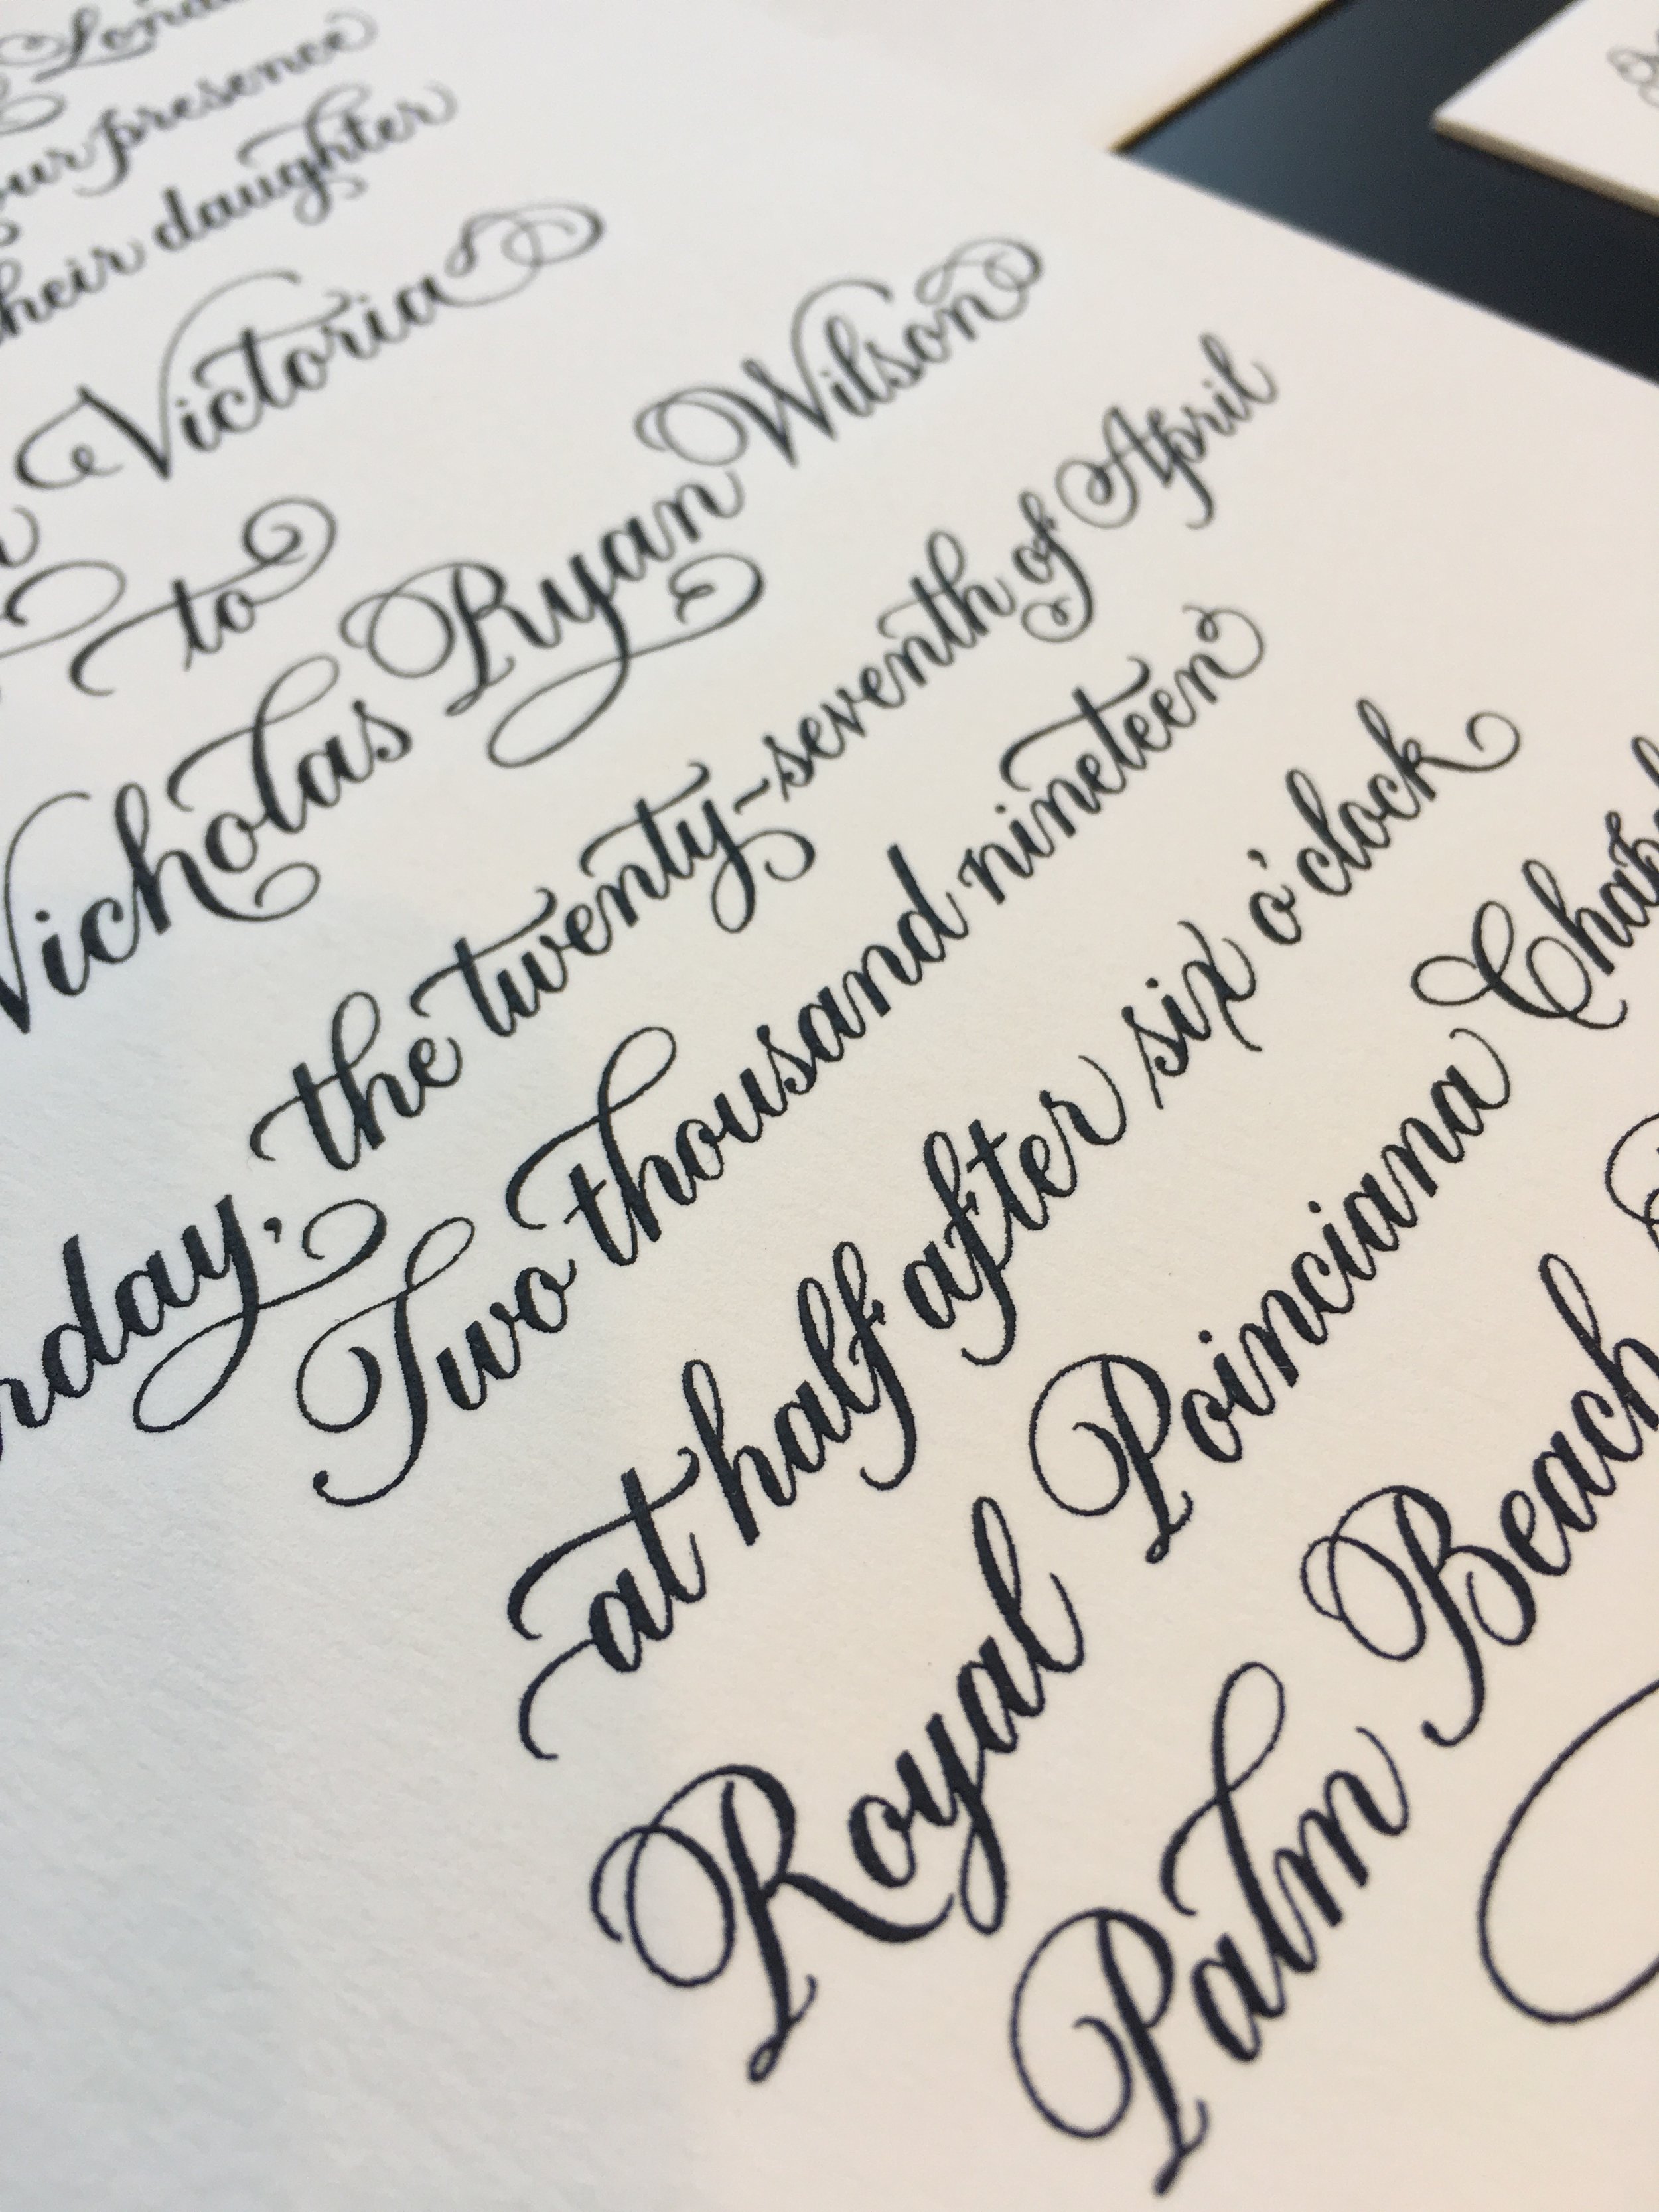 presence
their daughter
Victoria
to
Nicholas Ryan Wilson
the twenty-seventh of April
Two thousand nineteen
at half after six o'clock
Royal Poinciana
Palm Beach